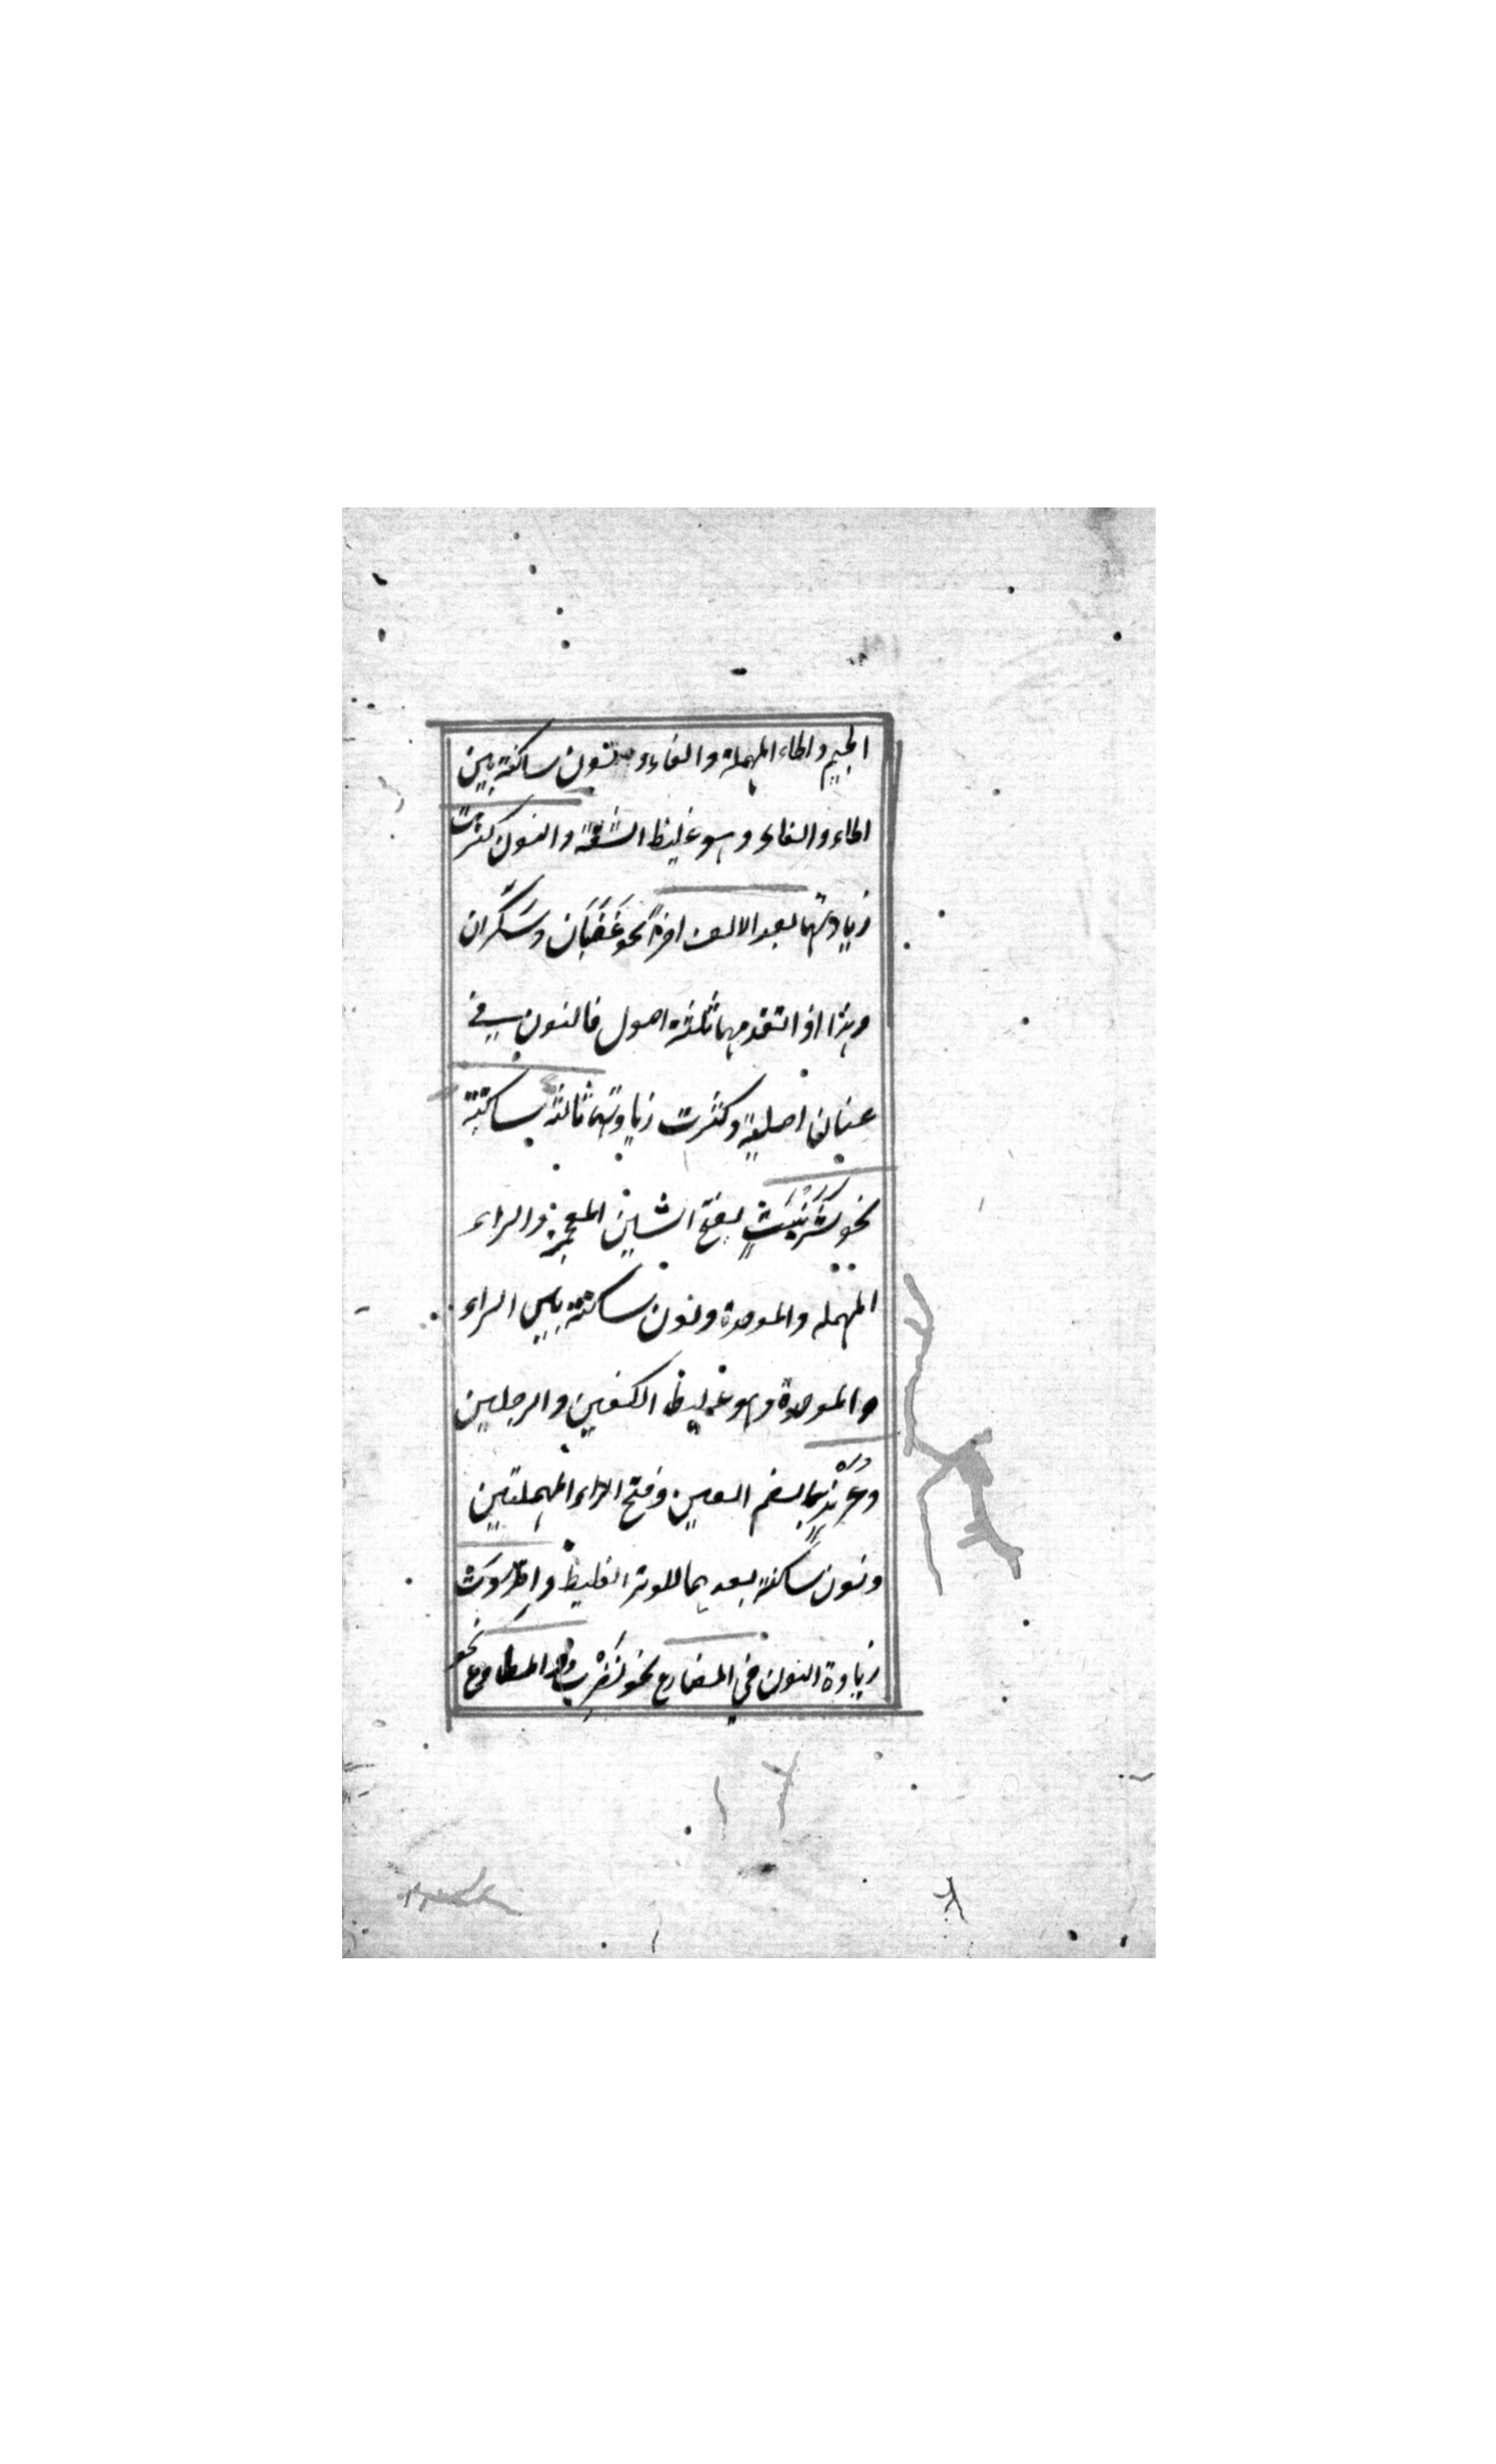 الجيم والحاء المهملة والفاء ونون ساكنة بين
الحاء والفاء وهو غليظ الشفة والنون كثرت
زيادتها بعد الالف اخرة نحو غَضَبَان وسَكْران
وهذا اذا تقدمهما ثلثة اصول فالنون في
عنان اصلية وكثرت زيادتها ثالثة ساكنة
نحو شَرَنْبَثٍ بفتح الشين المعجمة والراء
المهمله والموحدة ونون ساكنة بين الراء
والموحدة وهو غليظ الكفين والرجلين
وعُرُنْدٍ بضم العين وفتح الراء المهملتين
ونون ساكنة بعدهما للوتر الغليظ واطردت
زيادة النون في المضارع نحو نَضْرِب والمطاوع نحو